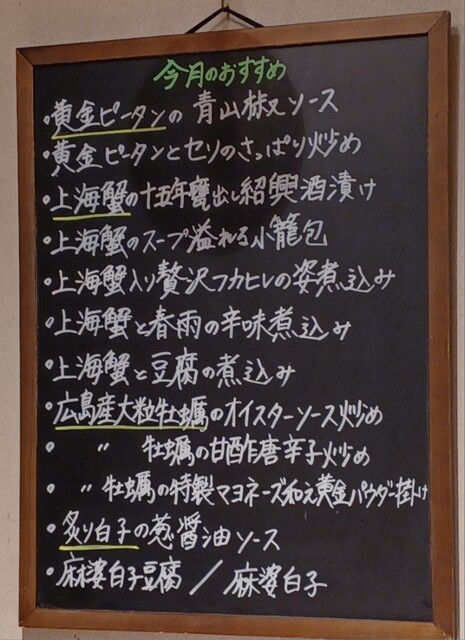 今月のおすすめ
・黄金ピータンの青山椒ソース
・黄金ピータンとセリのさっぱり炒め
・上海蟹の十五年甕出し紹興酒漬け
・上海蟹のスープ溢れる小籠包
・上海蟹入り贅沢フカヒレの姿煮込み
・上海蟹と春雨の辛味煮込み
・上海蟹と豆腐の煮込み
・広島産大粒牡蠣のオイスターソース炒め
・ 〃 牡蠣の甘酢唐辛子炒め
・ 〃 牡蠣の特製マヨネーズ和え黄金パウダー掛け
・炙り白子の葱醤油ソース
・麻婆白子豆腐／麻婆白子